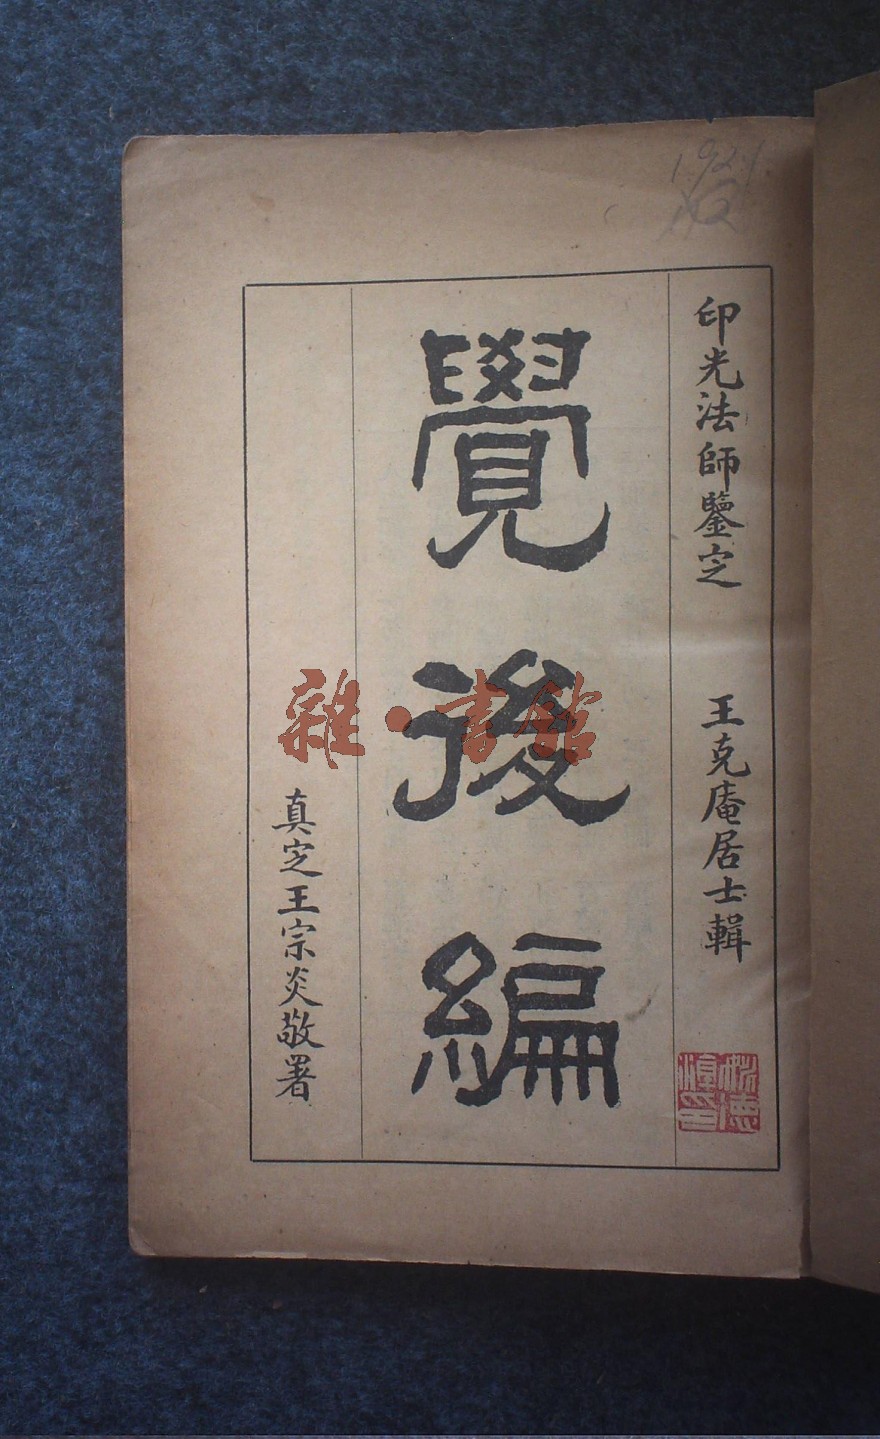 印光法師鑒定
王克庵居士輯
覺後編
真定王宗炎敬署
雜·書館